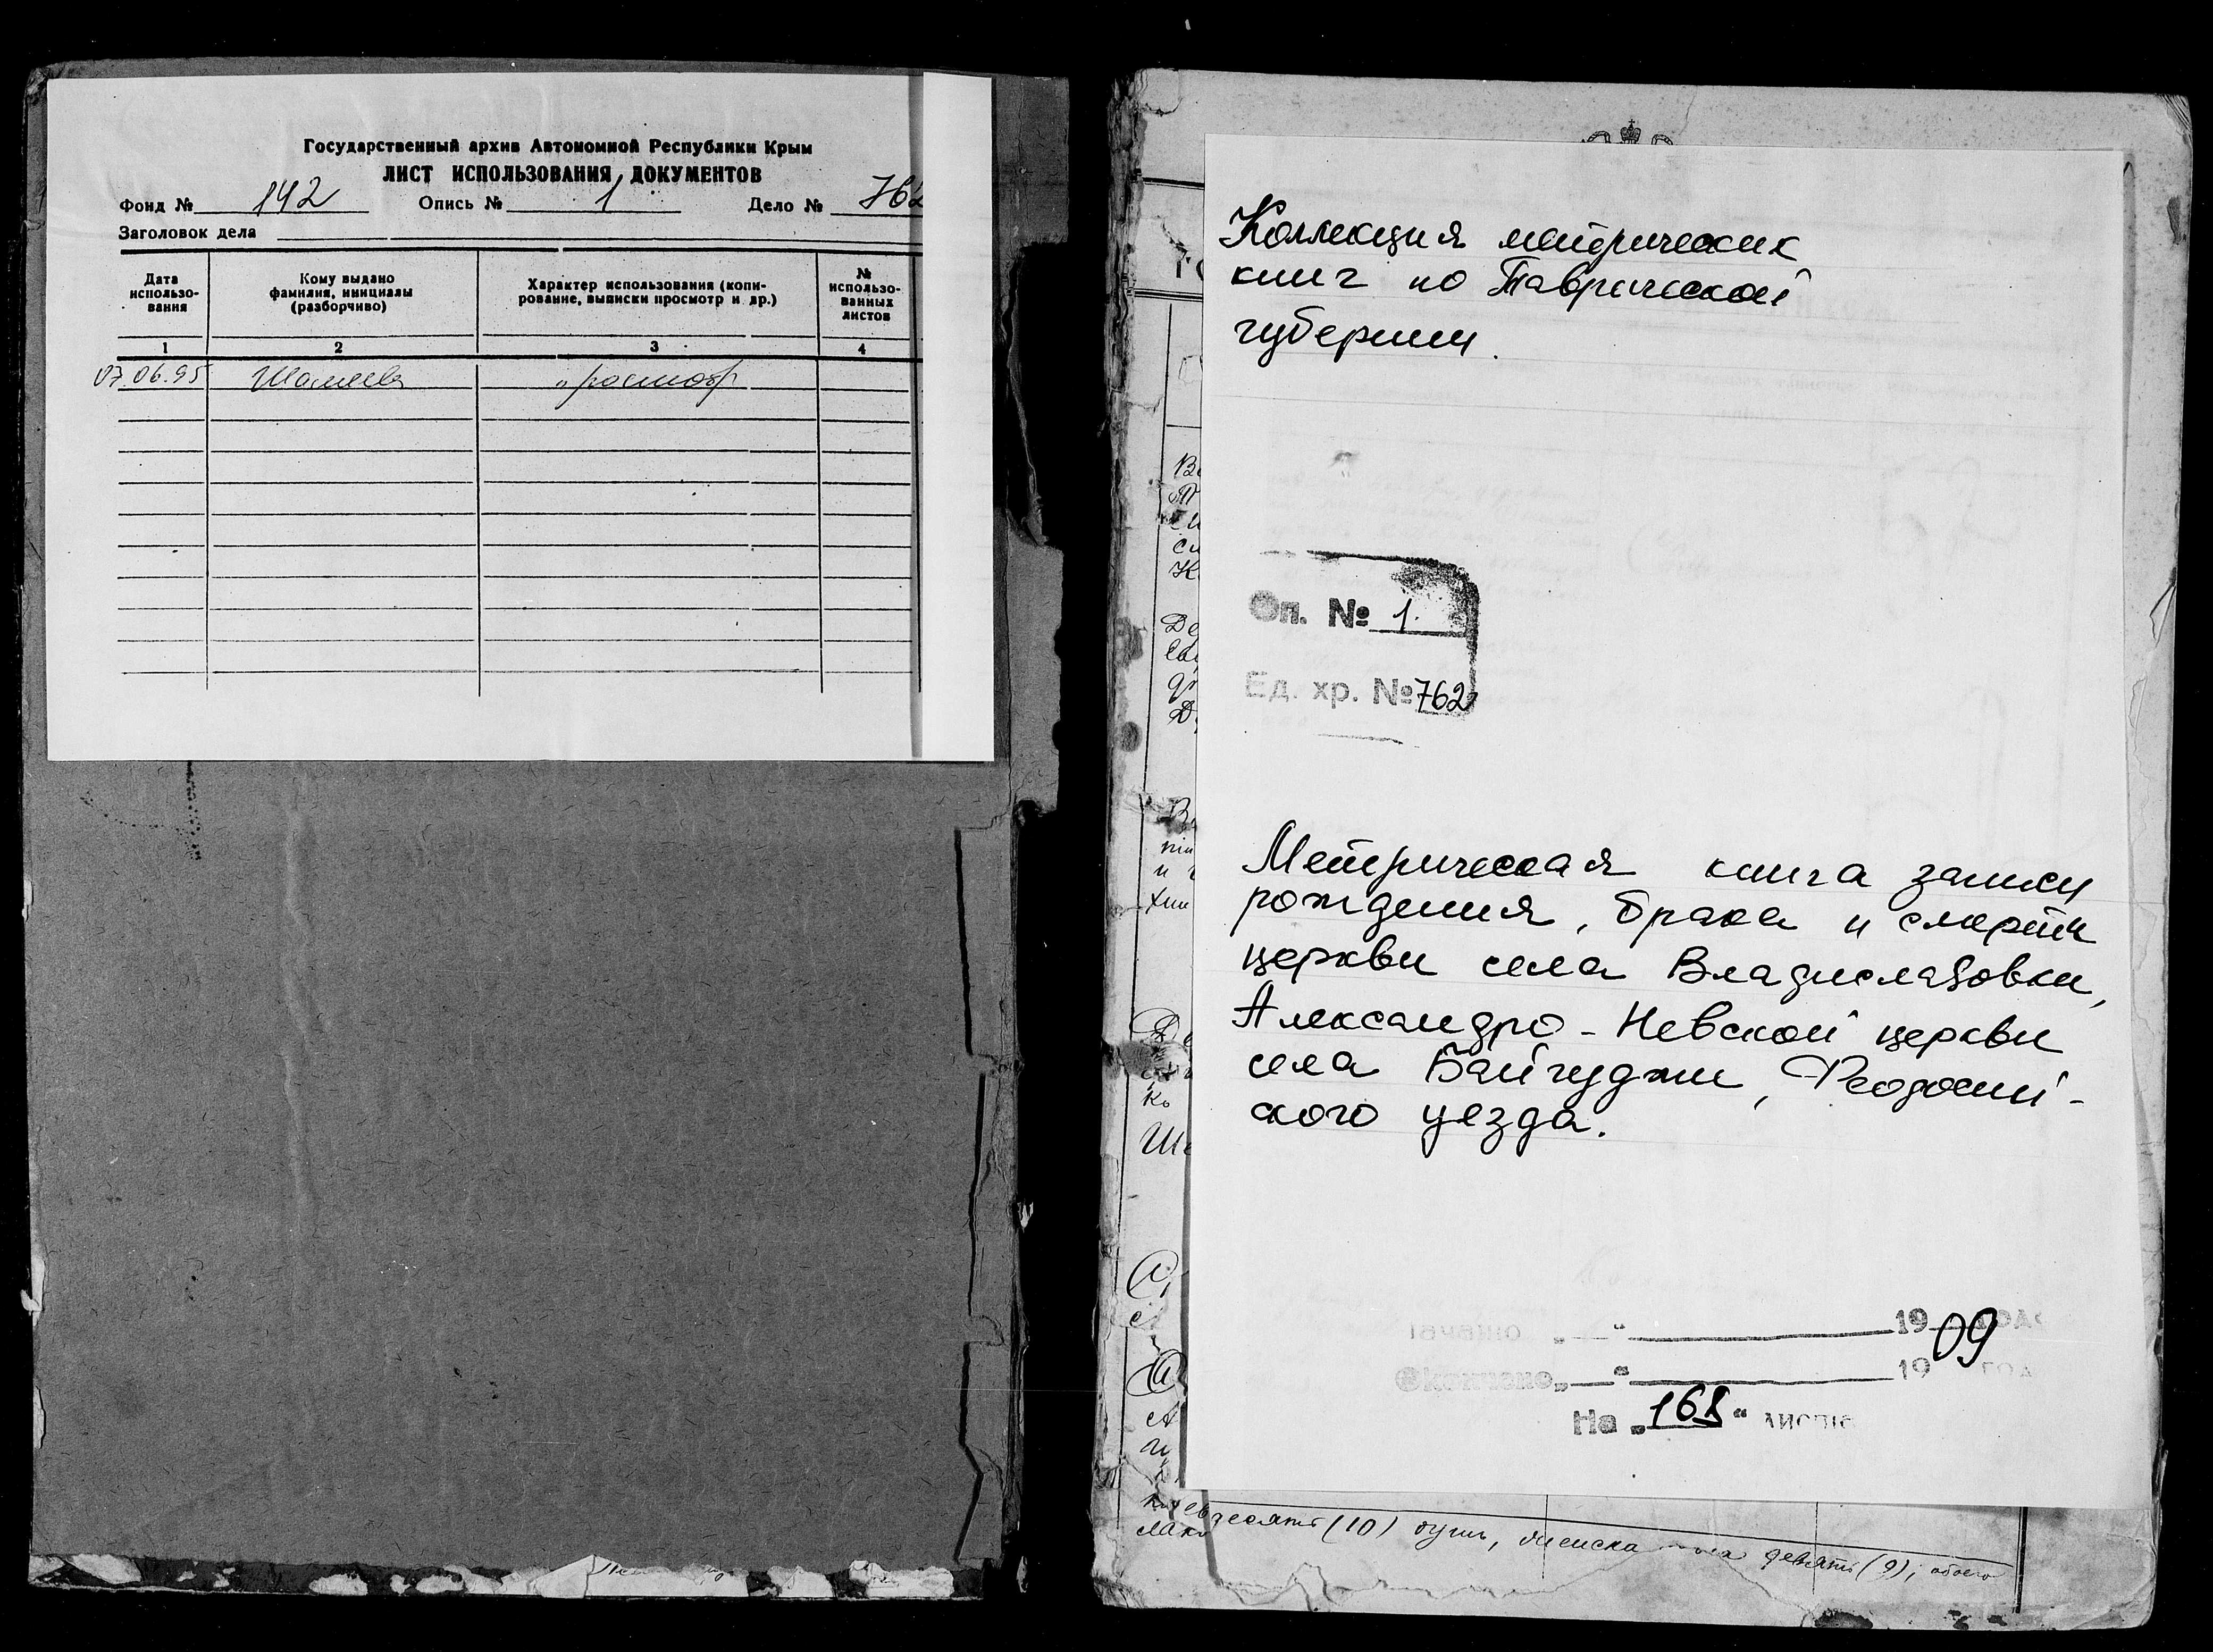 Государственный архив Автономной Республики Крым
ЛИСТ ИСПОЛЬЗОВАНИЯ ДОКУМЕНТОВ
Фонд № 142 Опись № 1 Дело № 762
Заголовок дела
Дата использо-вания
Кому выдано фамилия, инициалы (разборчиво)
Характер использования (копи-рование, выписки просмотр и др.)
№ использо-ванных листов
1 2 3 4
07.06.95 просмотр
Коллекция метрических
книг по Таврической
губернии.
Оп. № 1.
Ед. хр. № 762
Метрическая книга записи
рождения, брака и смерти
церкви села Владиславовки,
Александро-Невской церкви
села Байгуджи, Феодосий-
ского уезда.
Начато „ “ 1909 года
Окончено „ “ 19 год
На „ “ листах
десять (10) душъ, женска девять (9); обоего